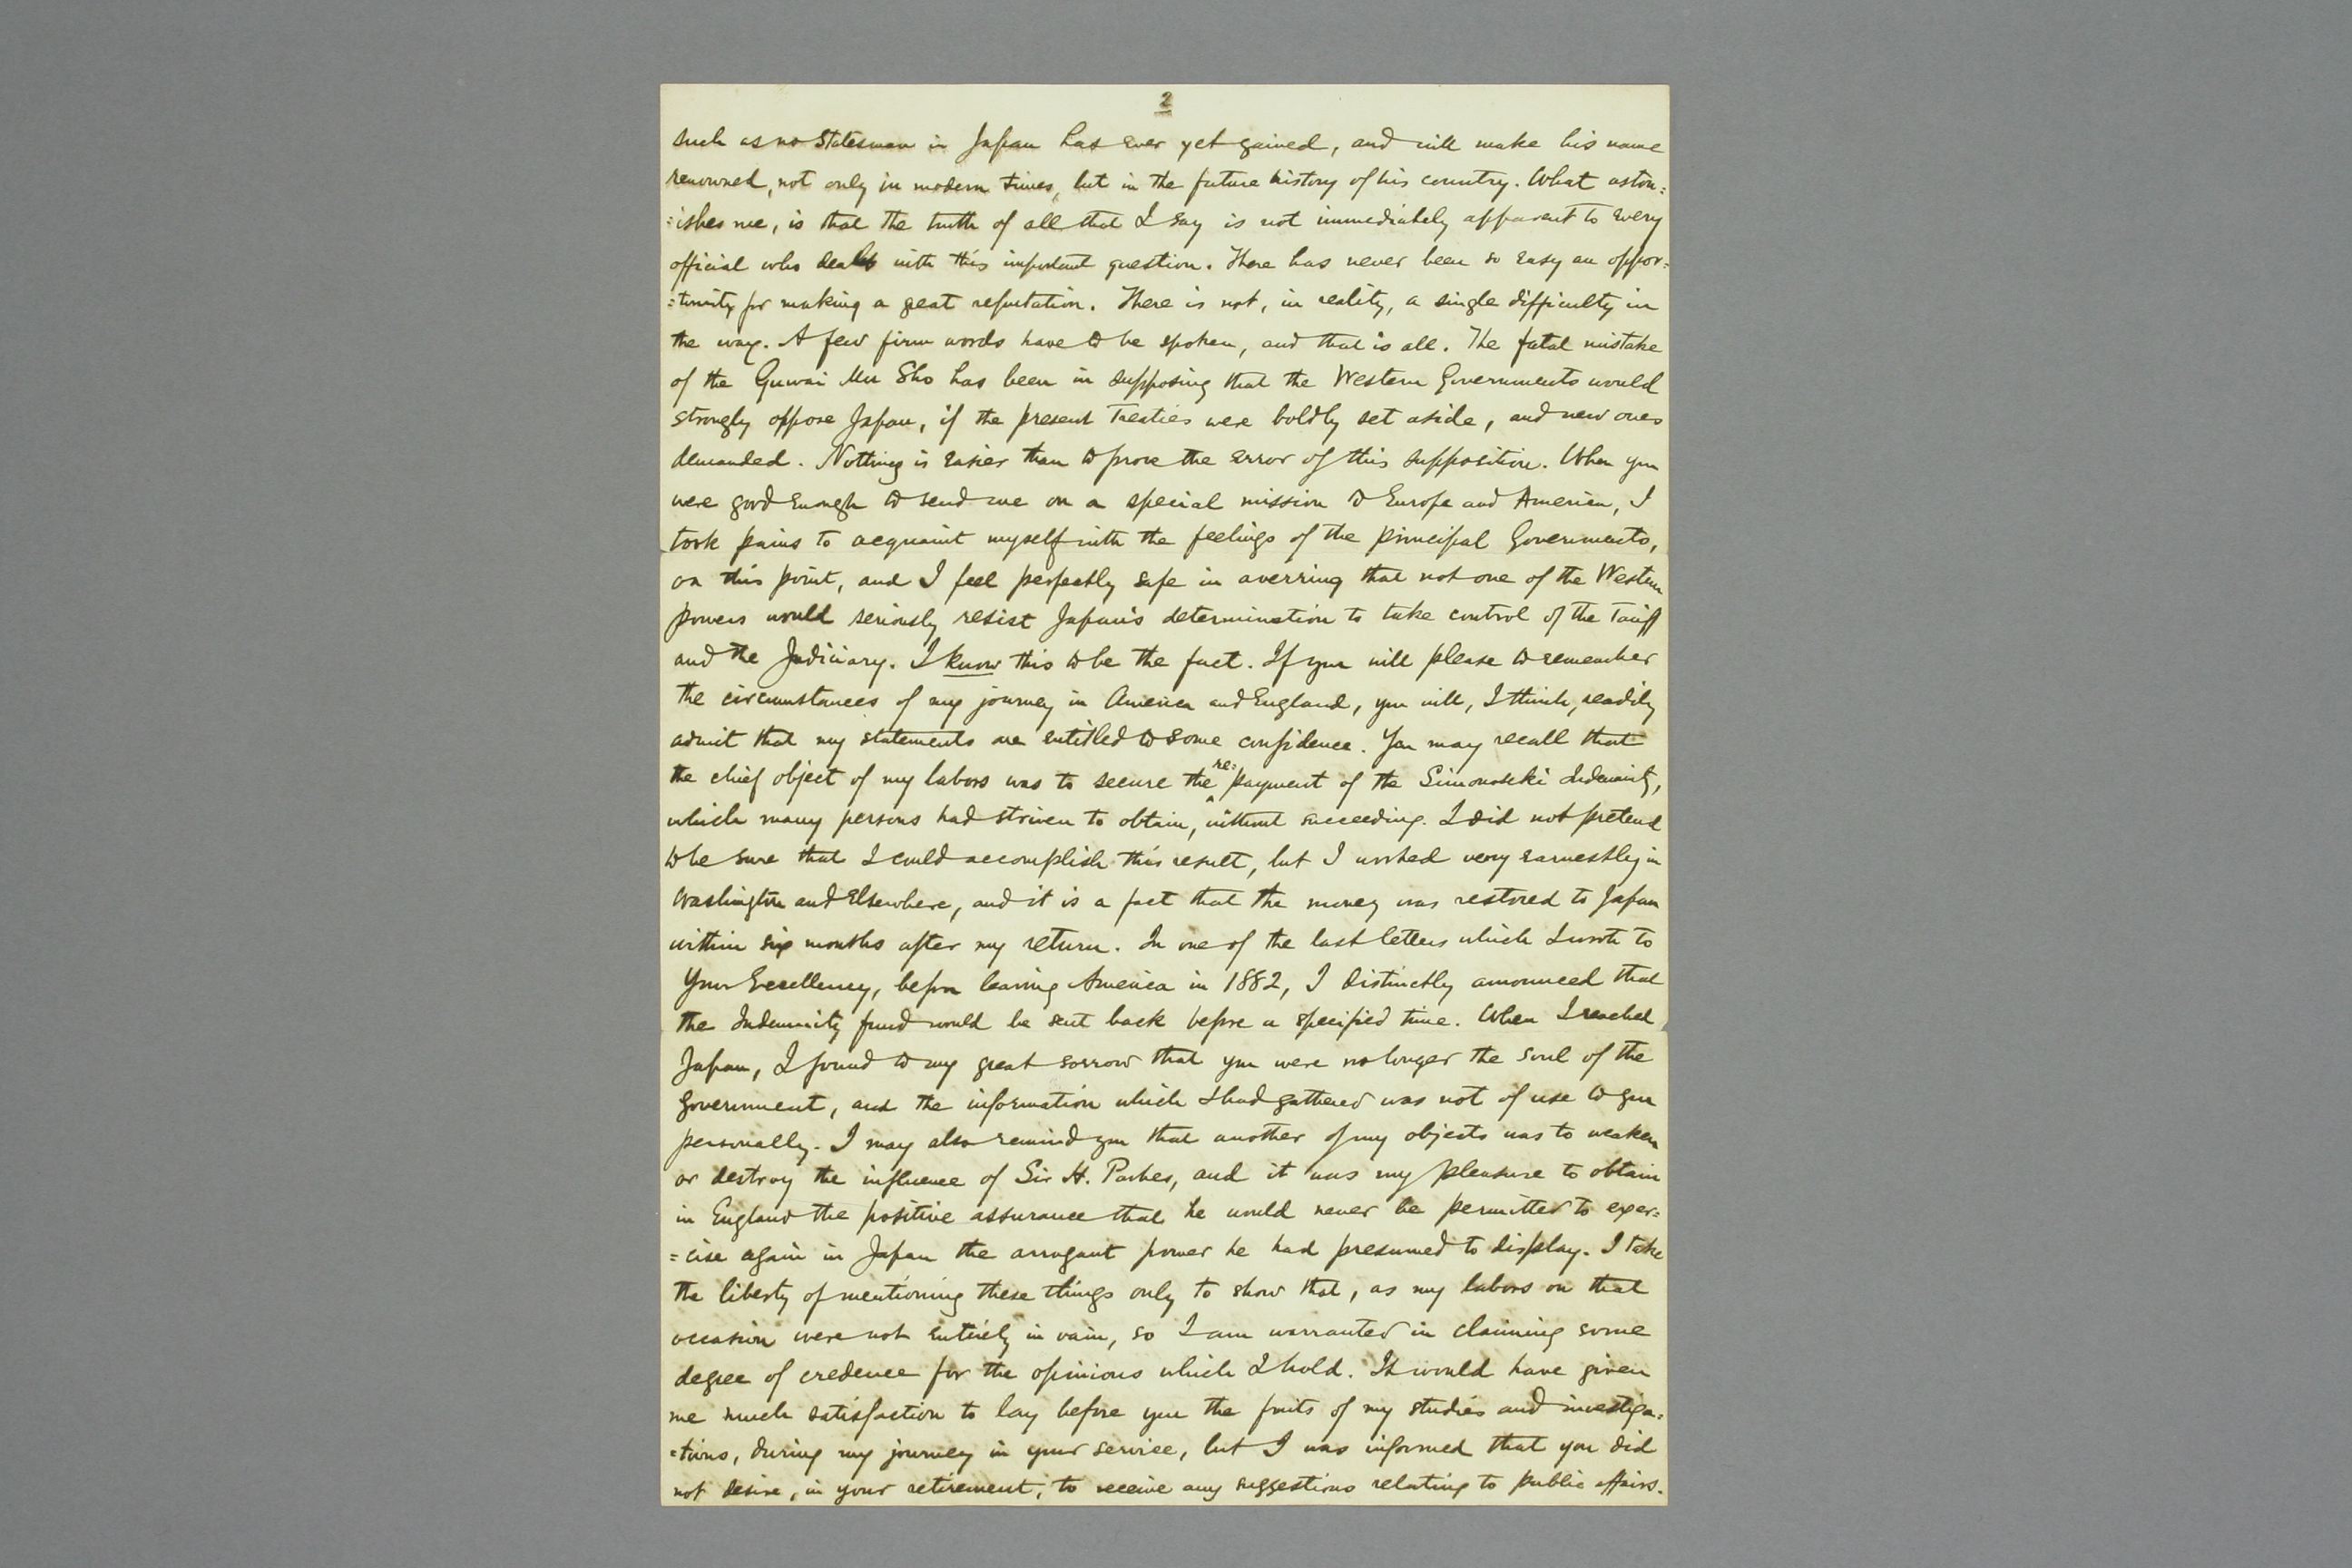 2
such as no Statesman in Japan has ever yet gained, and will make his name
renowned, not only in modern times, but in the future history of his country. What aston=
=ishes me, is that the truth of all that I say is not immediately apparent to every
official who deals with this important question. There has never been so easy an oppor=
=tunity for making a great reputation. There is not, in reality, a single difficulty in
the way. A few firm words have to be spoken, and that is all. The fatal mistake
of the Guwai Mu Sho has been in supposing that the Western Governments would
strongly oppose Japan, if the present Treaties were boldly set aside, and new ones
demanded. Nothing is easier than to prove the error of this supposition. When you
were good enough to send me on a special mission to Europe and America, I
took pains to acquaint myself with the feelings of the principal Governments,
on this point, and I feel perfectly safe in averring that not one of the Western
powers would seriously resist Japan's determination to take control of the Tariff
and the Judiciary. I know this to be the fact. If you will please to remember
the circumstances of my journey in America and England, you will, I think, readily
admit that my statements are entitled to some confidence. You may recall that
the chief object of my labors was to secure the re=payment of the Simonoseki Indemnity,
which many persons had striven to obtain, without succeeding. I did not pretend
to be sure that I could accomplish this result, but I worked very earnestly in
Washington and Elsewhere, and it is a fact that the money was restored to Japan
within six months after my return. In one of the last letters which I wrote to
Your Excellency, before leaving America in 1882, I distinctly announced that
the Indemnity fund would be sent back before a specified time. When I reached
Japan, I found to my great sorrow that you were no longer the soul of the
Government, and the information which I had gathered was not of use to you
personally. I may also remind you that another of my objects was to weaken
or destroy the influence of Sir H. Parkes, and it was my pleasure to obtain
in England the positive assurance that he would never be permitted to exer=
=cise again in Japan the arrogant power he had presumed to display. I take
the liberty of mentioning these things only to show that, as my labors on that
occasion were not entirely in vain, so I am warranted in claiming some
degree of credence for the opinions which I hold. It would have given
me much satisfaction to lay before you the fruits of my studies and investiga=
=tions, during my journey in your service, but I was informed that you did
not desire, in your retirement, to receive any suggestions relating to public affairs.